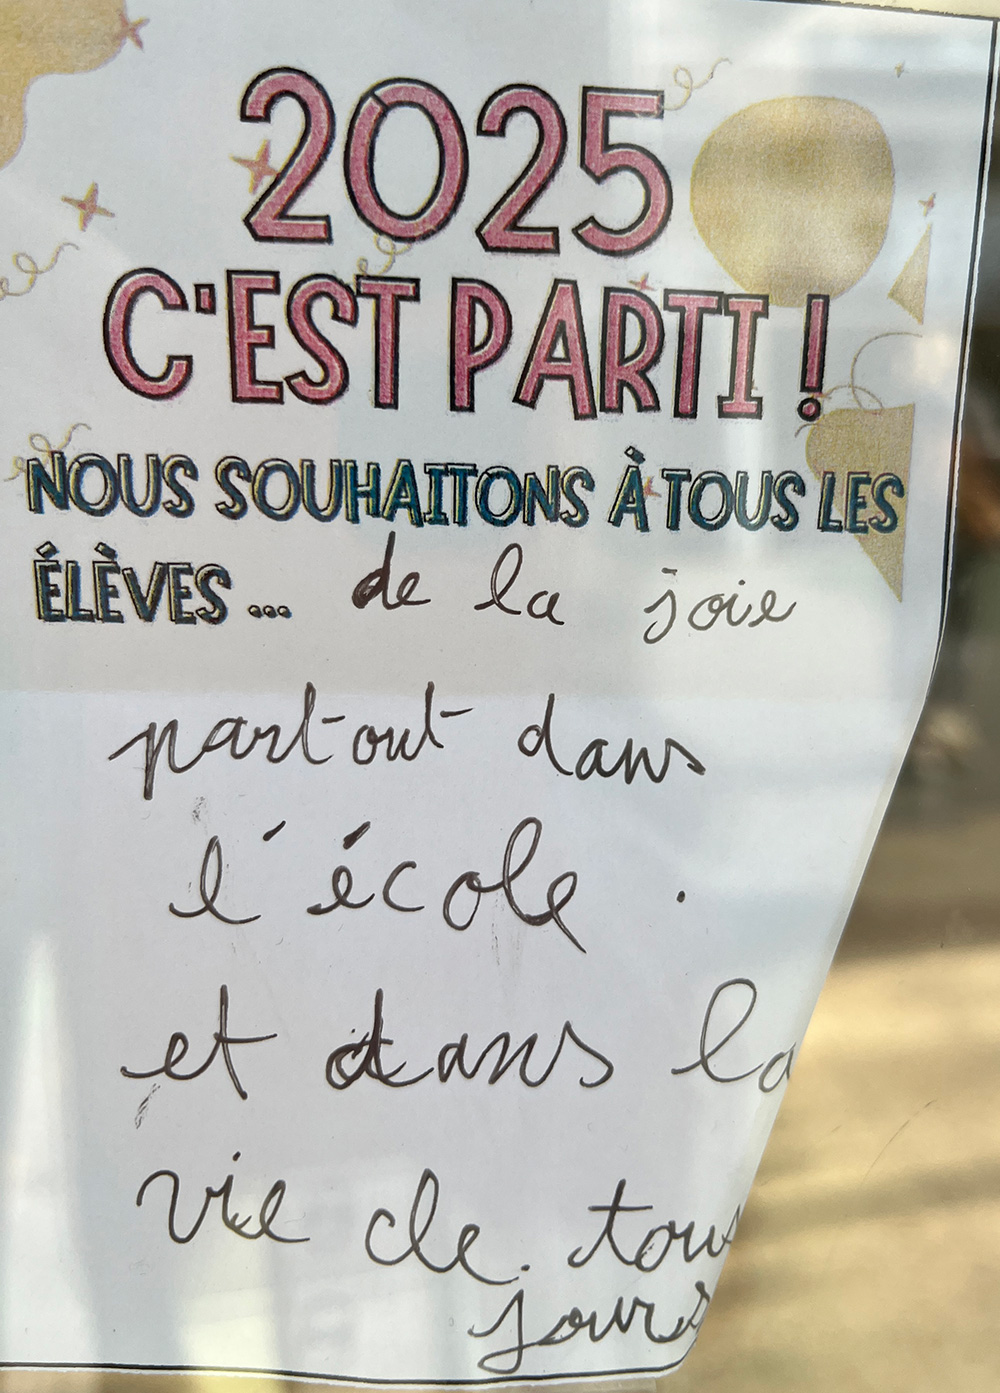 2025
C'EST PARTI !
NOUS SOUHAITONS À TOUS LES
ÉLÈVES... de la joie
partout dans
l'école.
et dans la
vie de tous
jours